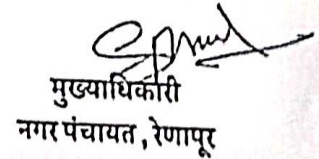 मुख्याधिकारी
नगर पंचायत, रेणापूर